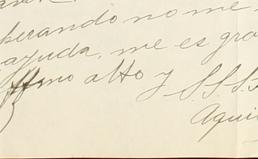 perando no me
ayuda, me es gra
ffmo alto y S.S.S.
Aqui